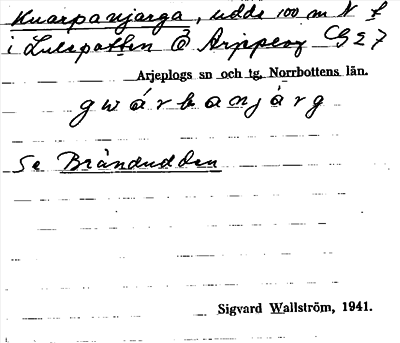 Kuarpanjarga, udde 100 m N f
i Lulepotten Ö Arjeplog
Arjeplogs sn och tg, Norrbottens län.
g w á r b a n j á r g
Se Brändudden
Sigvard Wallström, 1941.